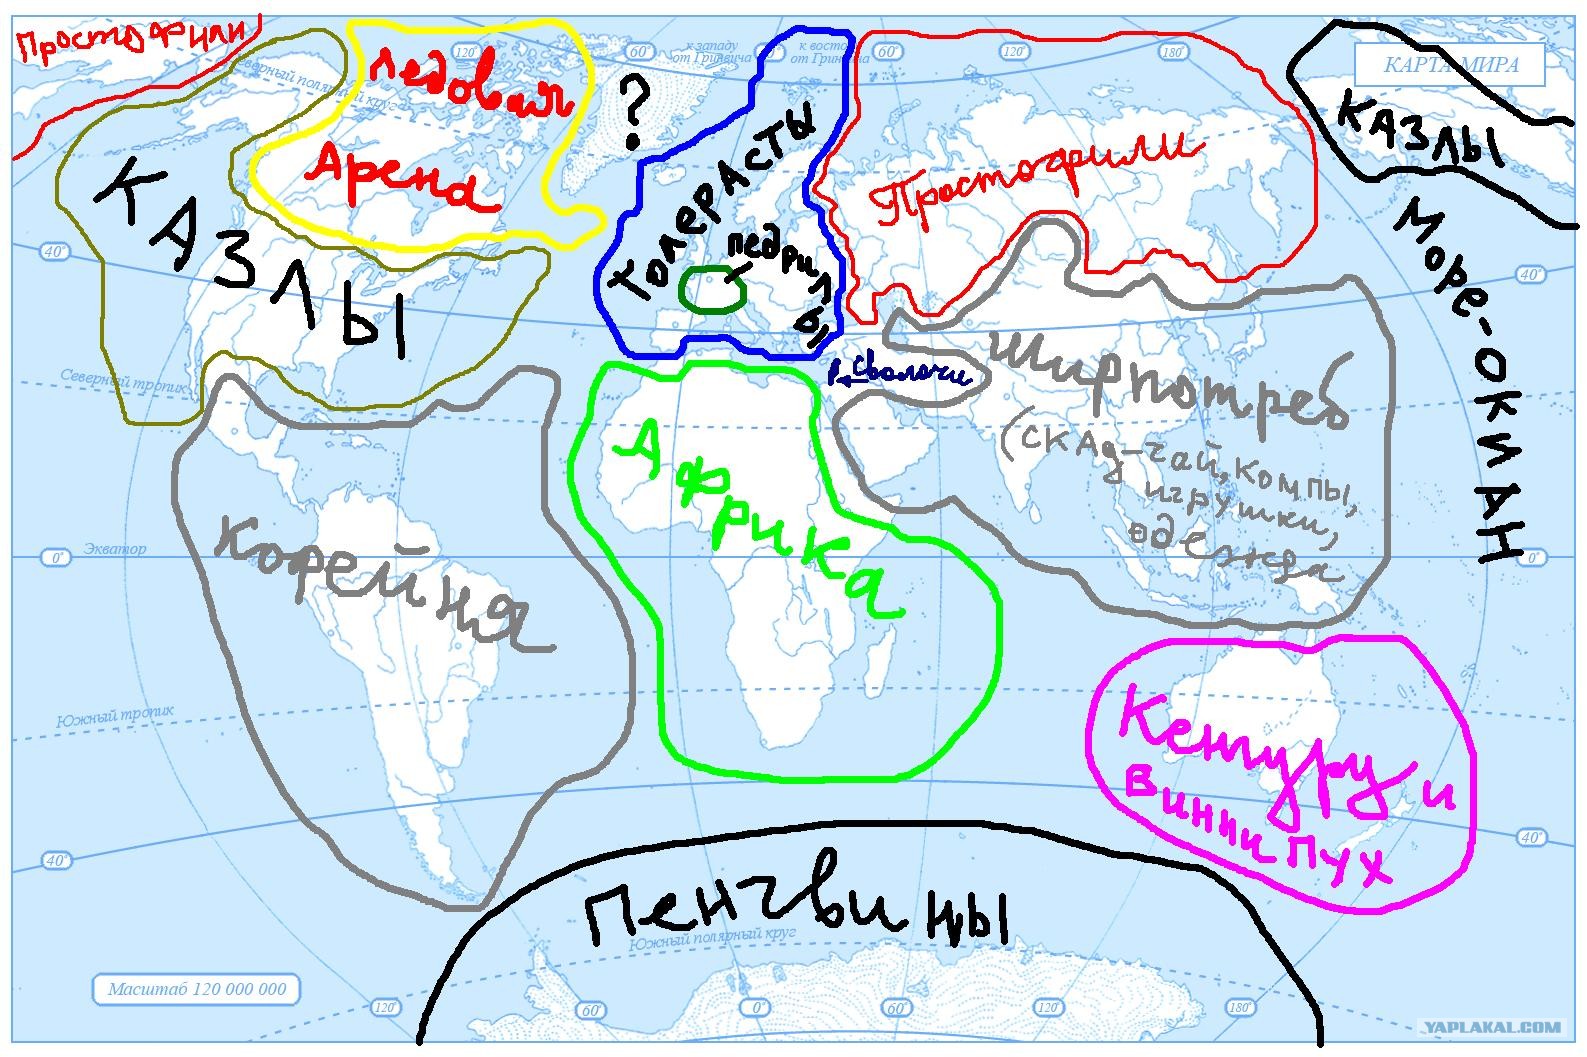 Простофили
Ледовая
Арена
120°
60°
к западу
от Гринвича
0°
к восто
от Гринвича
60°
120°
180°
КАРТА МИРА
КАЗЛЫ
Северный полярный круг
КАЗЛЫ
?
ТОЛЕРАСТЫ
педрилы
Простофили
Море-окиАН
40°
40°
Северный тропик
Сволочи
Ширпотреб
(СКАд-чай, компы,
игрушки,
одежда
Африка
Кофейня
0°
Экватор
0°
Южный тропик
Кенгуру и
Винни пух
40°
40°
Пенгвины
Южный полярный круг
Масштаб 120 000 000
120°
60°
0°
60°
120°
180°
YAPLAKAL.COM